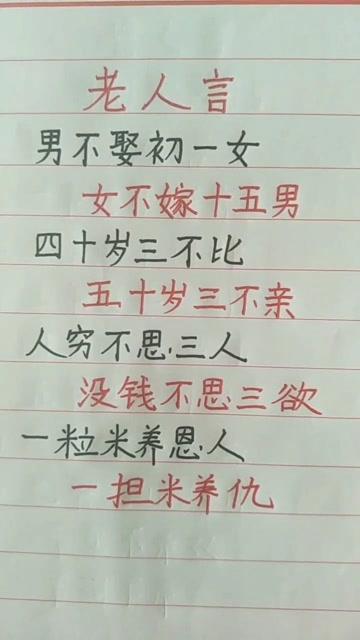 老人言
男不娶初一女
女不嫁十五男
四十岁三不比
五十岁三不亲
人穷不思三人
没钱不思三欲
一粒米养恩人
一担米养仇